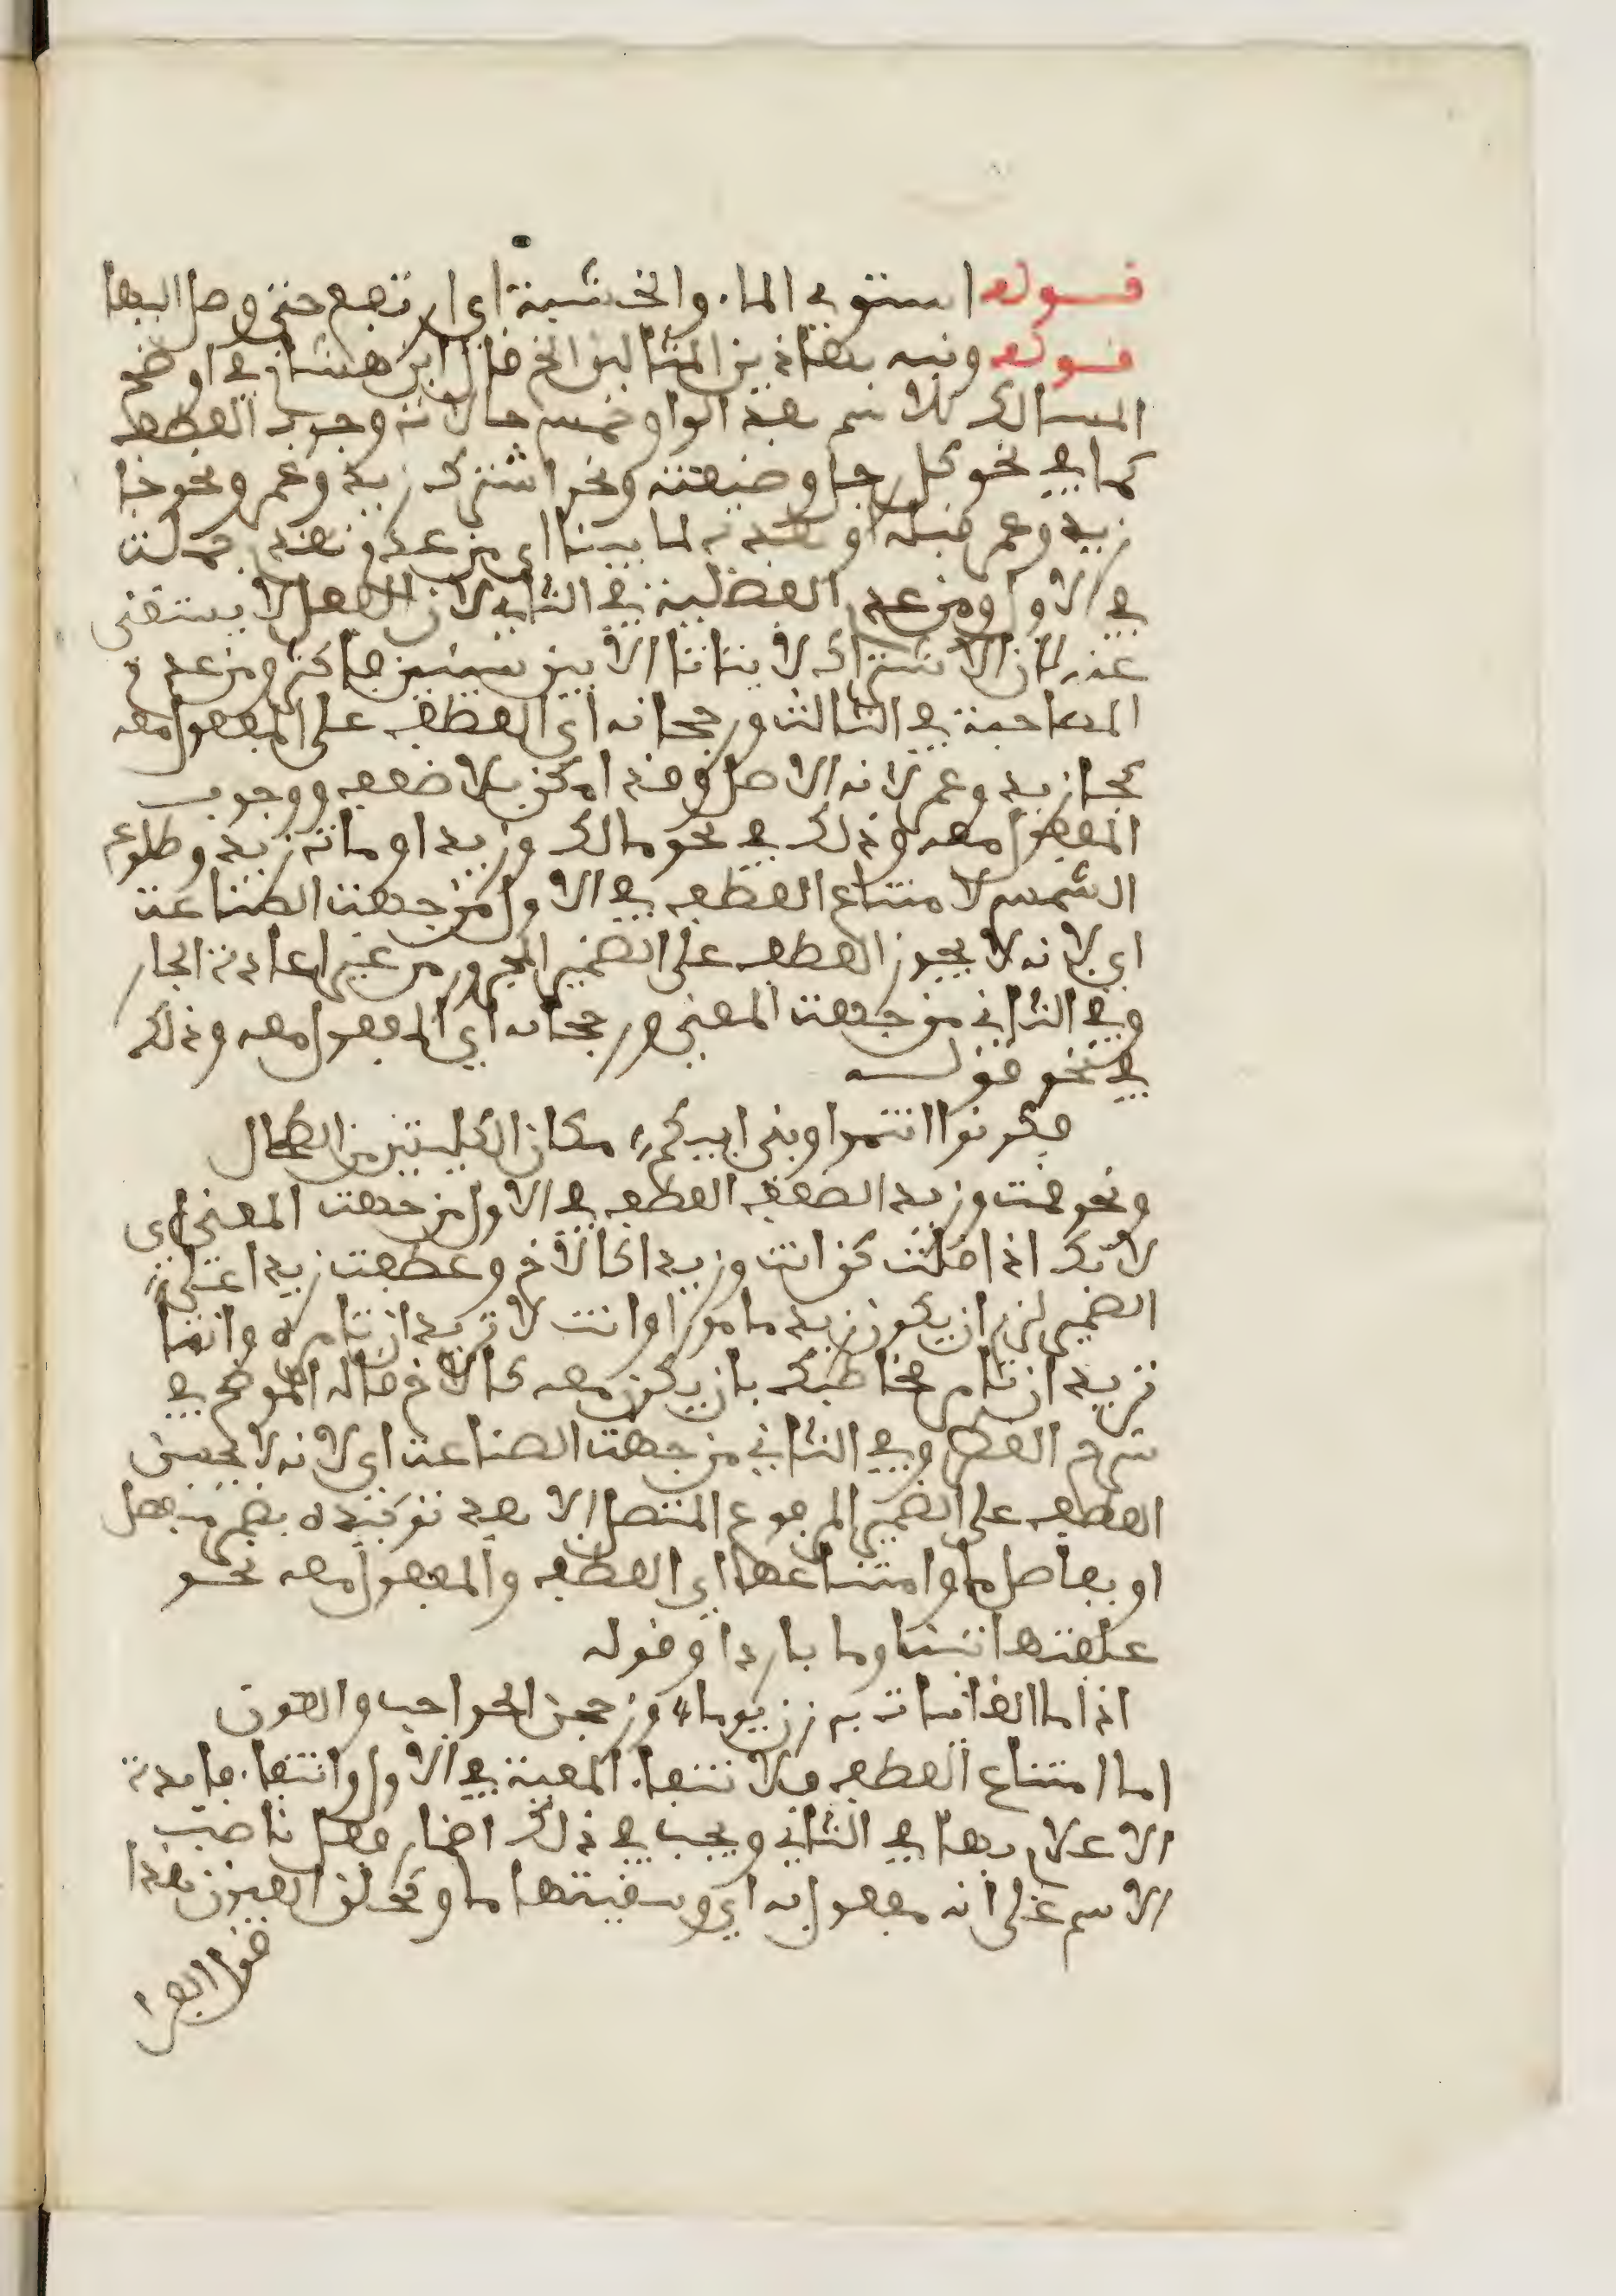 قوله استوى الماء والخشبة أي ارتفع حتى وصل إليها
قوله ونبه بهاذين المثالين الخ قال ابن هشام في اوضح
المسالك للاسم بعد الواو خمس حالات وجوب العطف
كما في نحو كل رجل وضيعته ونحو اشترك زيد وعمر ونحو جا
زيد وعمر قبله او بعده لما بينا اي من عدم تقدم جملت
في الاول ومن عدم الفضلية في الثاني لان الفعل لا يستغنى
عنه لان الاشتراك لا يتاتا الا بين شيئين فاكثر ومن عدم
المصاحبة في الثالث ورجحانه اي العطف على المفعول معه
كجا زيد وعمر لانه الاصل وقد امكن بلا ضعف ووجوب
المفعول معه وذلك في نحو مالك وزيدا ومات زيد وطلوع
الشمس لامتناع العطف في الاول من جهت الصناعت
اي لانه لا يجوز العطف على الضمير المجرور من غير اعادت الجار
وفي الثاني من جهت المعنى ورجحانه اي المفعول معه وذلك
في نحو قوله
فكونوا انتموا وبني ابيكم مكان الكليتين من الطحال
ونحو قمت وزيدا لضعف العطف في الاول من جهت المعنى اي
لانك اذا قلت كن انت وزيدا كالاخ وعطفت زيدا على
الضمير لزم ان يكون زيد مامورا وانت لا تريد ان تامره وانما
تريد ان تامر مخاطبك بان يكون معه كالاخ قاله الموضح في
شرح القطر وفي الثاني من جهت الصناعت اي لانه لا يحسن
العطف على الضمير المرفوع المتصل الا بعد توكيده بضمير منفصل
او بفاصل ما وامتناعهما اي العطف والمفعول معه نحو
علفتها تبنا وما باردا وقوله
اذا ما الغانيات برزن يوما وزججن الحواجب والعيون
اما امتناع العطف فلانتفاء المعية في الاول وانتفاء فايدت
الاعلام بها في الثاني ويجب في ذلك اضمار فعل ناصب
الاسم على انه مفعول به اي وسقيتها ما وكحلن العيون هذا
قول الفرا